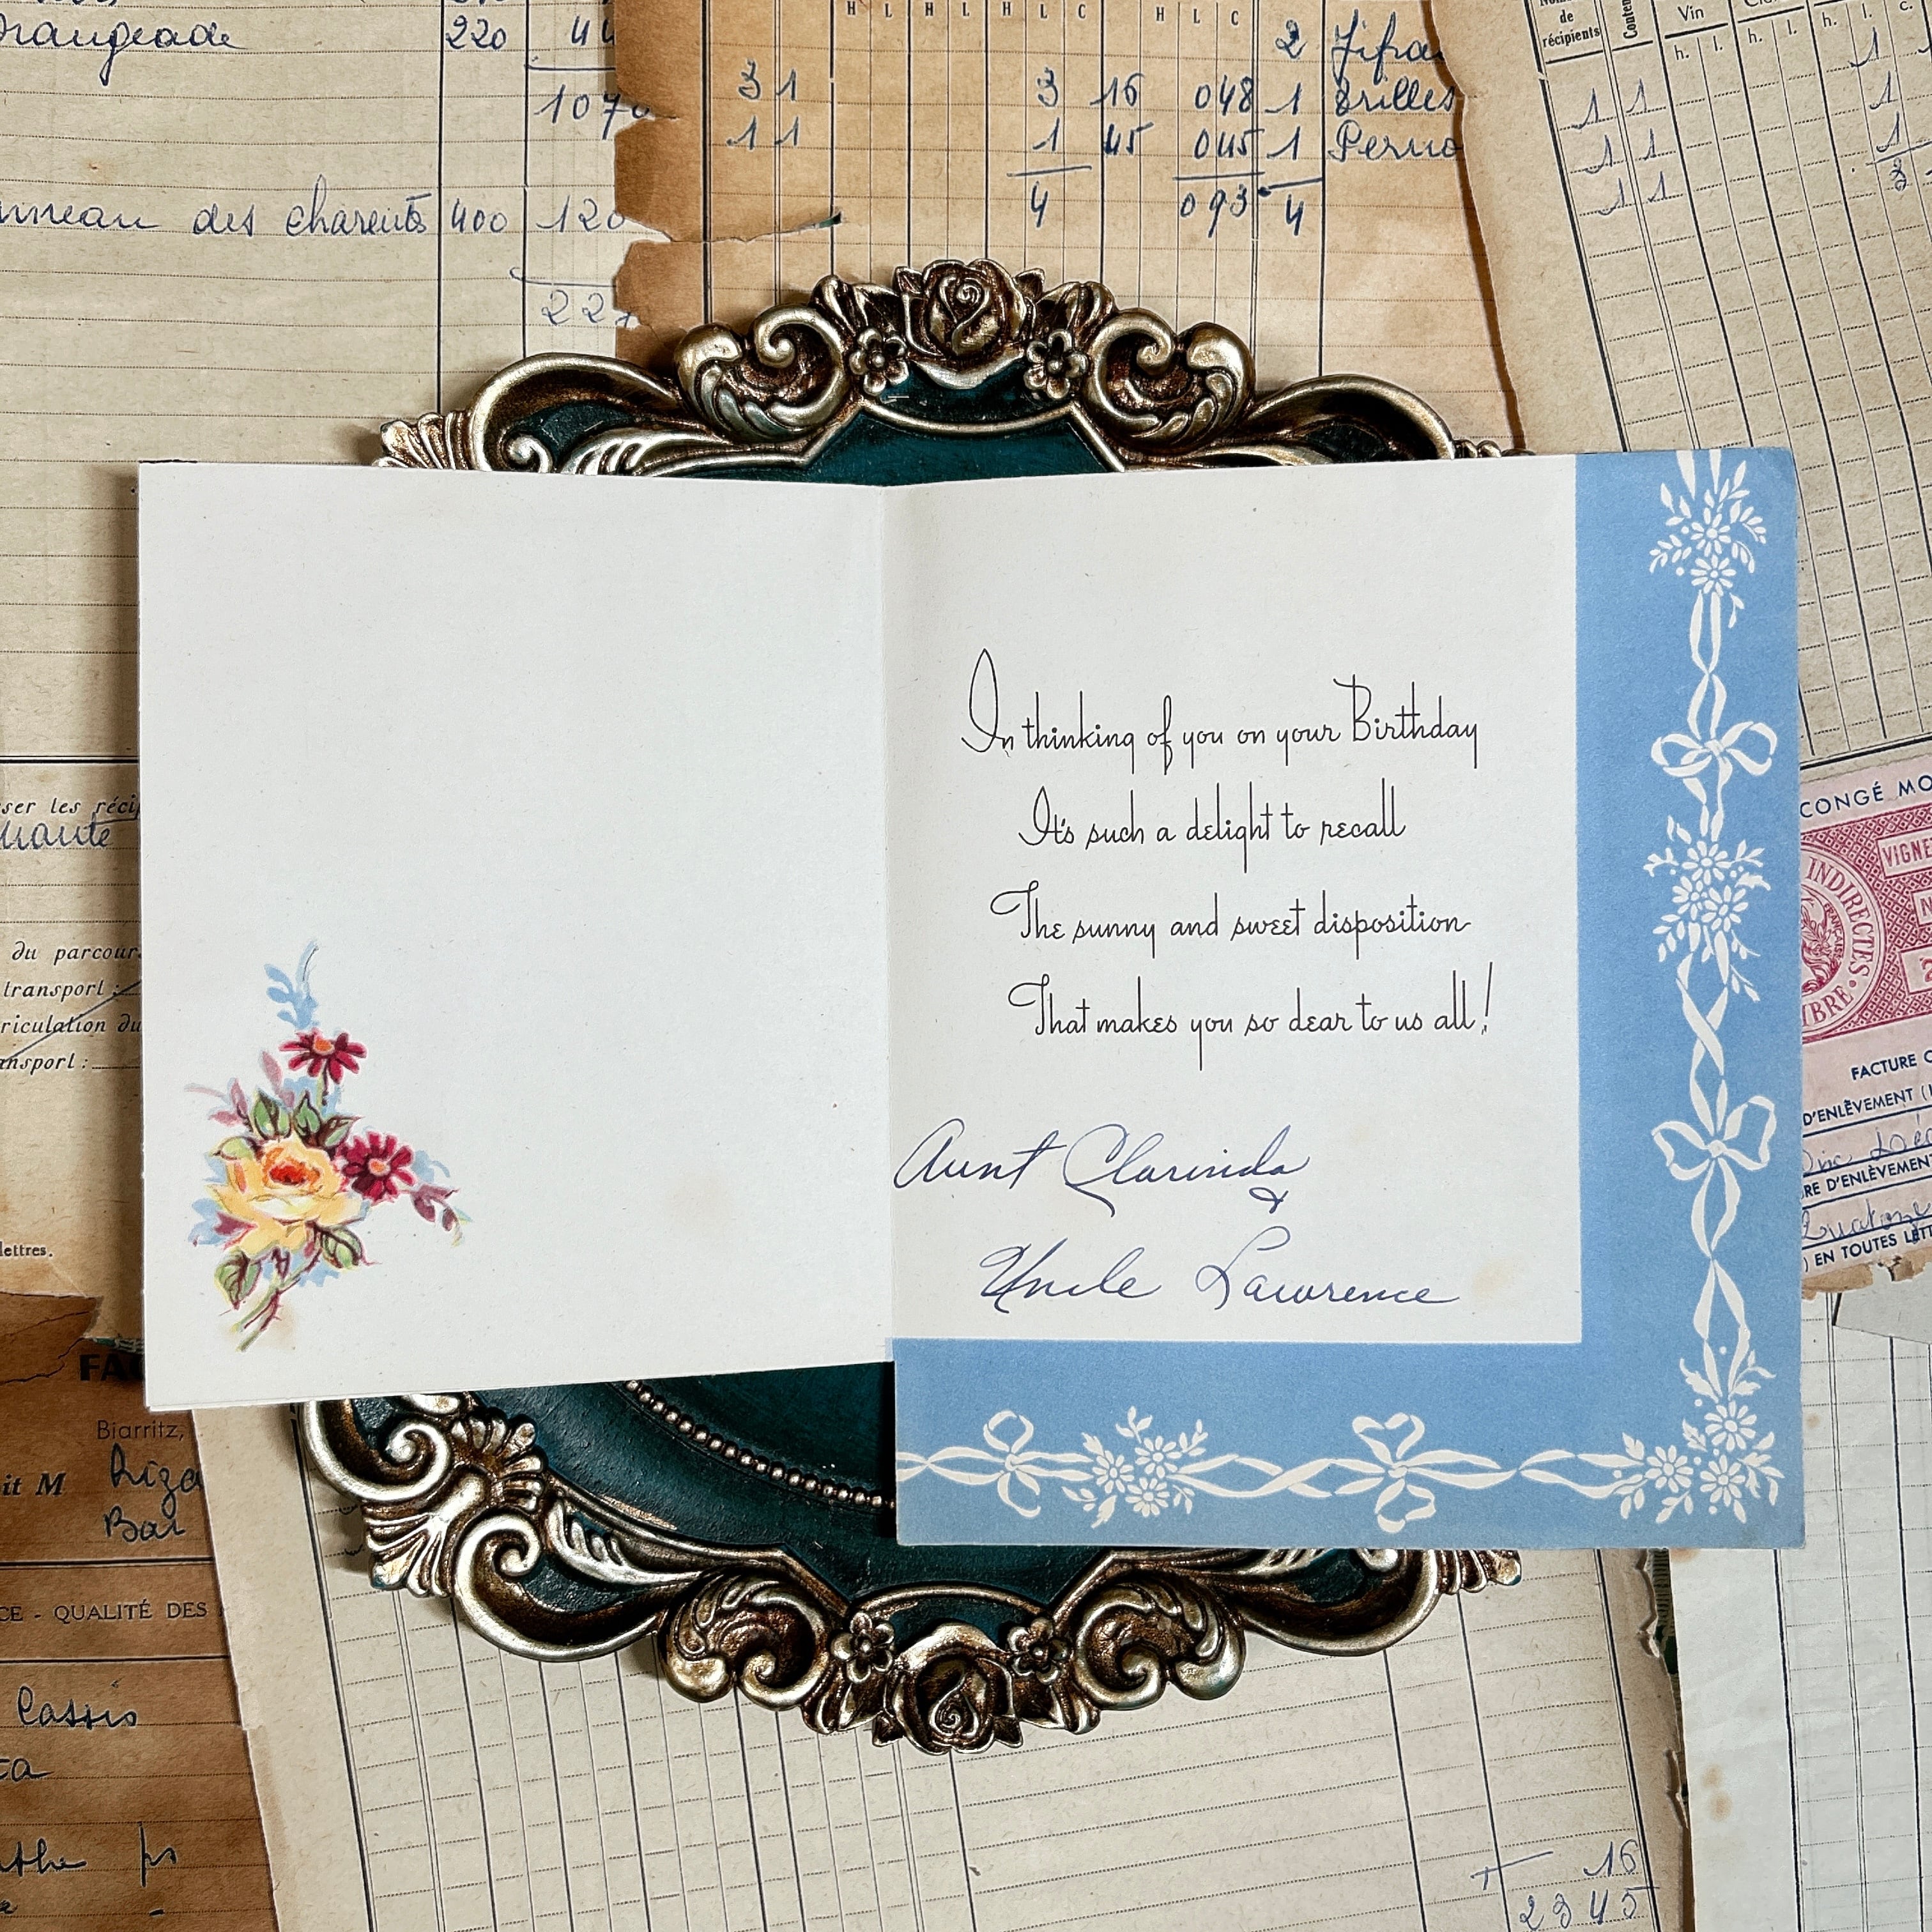 220
H L H L H L C H L C
2
31 3 16 048 1
11 1 45 045 1
4 093 4
de
récipients
Vin
h. l. h. l. h. l. c.
1 1
1 1
1 1
des charentes 400 120
In thinking of you on your Birthday
It's such a delight to recall
The sunny and sweet disposition
That makes you so dear to us all!
Aunt Clarinda
&
Uncle Lawrence
ser les
du parcour
transport :
riculation du
ansport :
lettres.
CONGÉ MO
VIGNE
INDIRECTES
FACTURE
D'ENLÈVEMENT
RE D'ENLÈVEMENT
EN TOUTES LETT
FA
Biarritz,
it M
Bar
CE - QUALITÉ DES
Cassis
16
2345